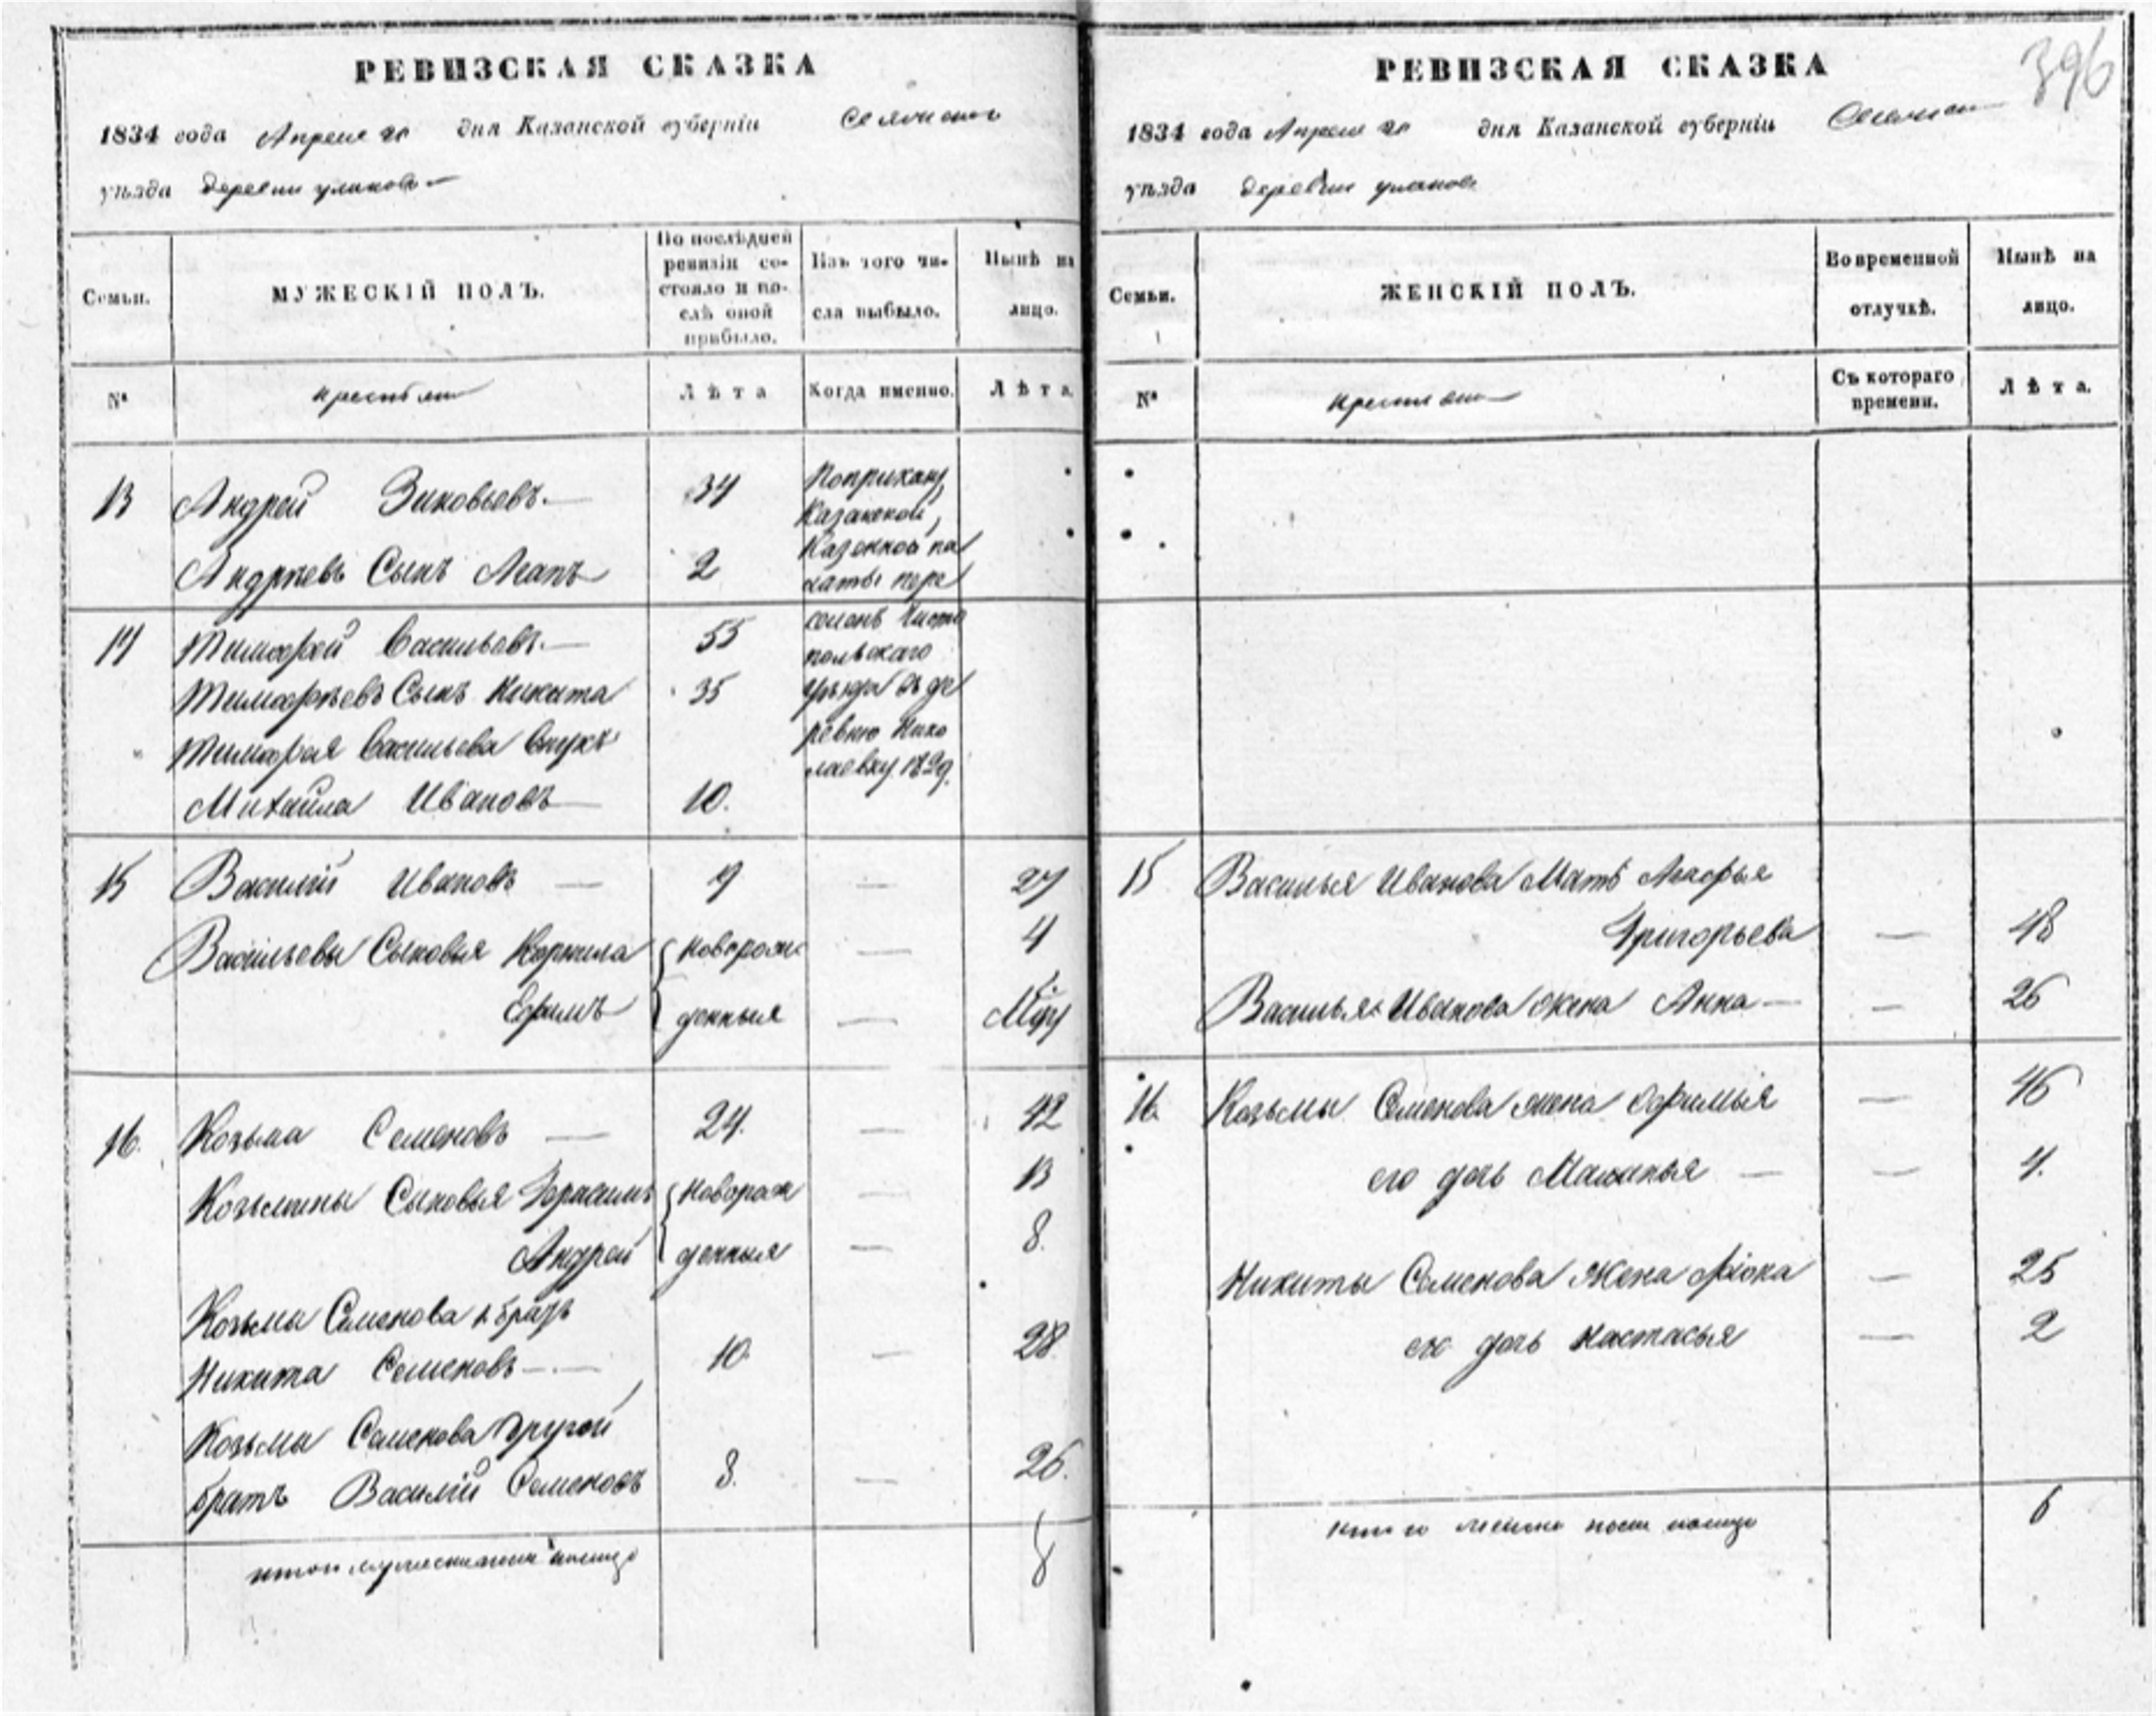 РЕВИЗСКАЯ СКАЗКА
1834 года Апреля 20 дня Казанской губерніи
уѣзда деревни
Семьи.
МУЖЕСКІЙ ПОЛЪ.
По послѣдней ревизіи состояло и послѣ оной прибыло.
Изъ того числа выбыло.
Нынѣ на лицо.
№
крестьяне
Лѣта
Когда именно.
Лѣта.
13 Андрей Зиновьевъ.— 34
Андрѣевъ Сынъ 2
По приказу
Казанской
Казенной па
латы пере
селенъ Чисто
польскаго
уѣзда въ де
ревню Нико
лаевку 1829.
14 Тимофей Васильевъ.— 55
Тимофѣевъ Сынъ Никита 35
Тимофея Васильева Внукъ
Михайла Ивановъ— 10.
15 Василій Ивановъ — 9 — 27
Васильевы Сыновья Корнила новорож — 4
Ефимъ денныя —
16. Козьма Семеновъ — 24. — 42
Козьмины Сыновья Герасимъ Новорож — 13
Андрей денныя — 8.
Козьмы Семенова 1 братъ
Никита Семеновъ— 10. — 28
Козьмы Семенова другой
братъ Василій Семеновъ 8. — 26.
8
РЕВИЗСКАЯ СКАЗКА
396
1834 года Апреля 20 дня Казанской губерніи
уѣзда деревни
Семьи.
ЖЕНСКІЙ ПОЛЪ.
Во временной отлучкѣ.
Нынѣ на лицо.
№
Съ котораго времени.
Лѣта.
15 Василья Иванова Мать
Григорьева — 48
Василья Иванова жена Анна — — 26
16. Козьмы Семенова жена Ефимья — 46
его дочь Маланья — — 4.
Никиты Семенова Жена — 25
его дочь Настасья — 2
6